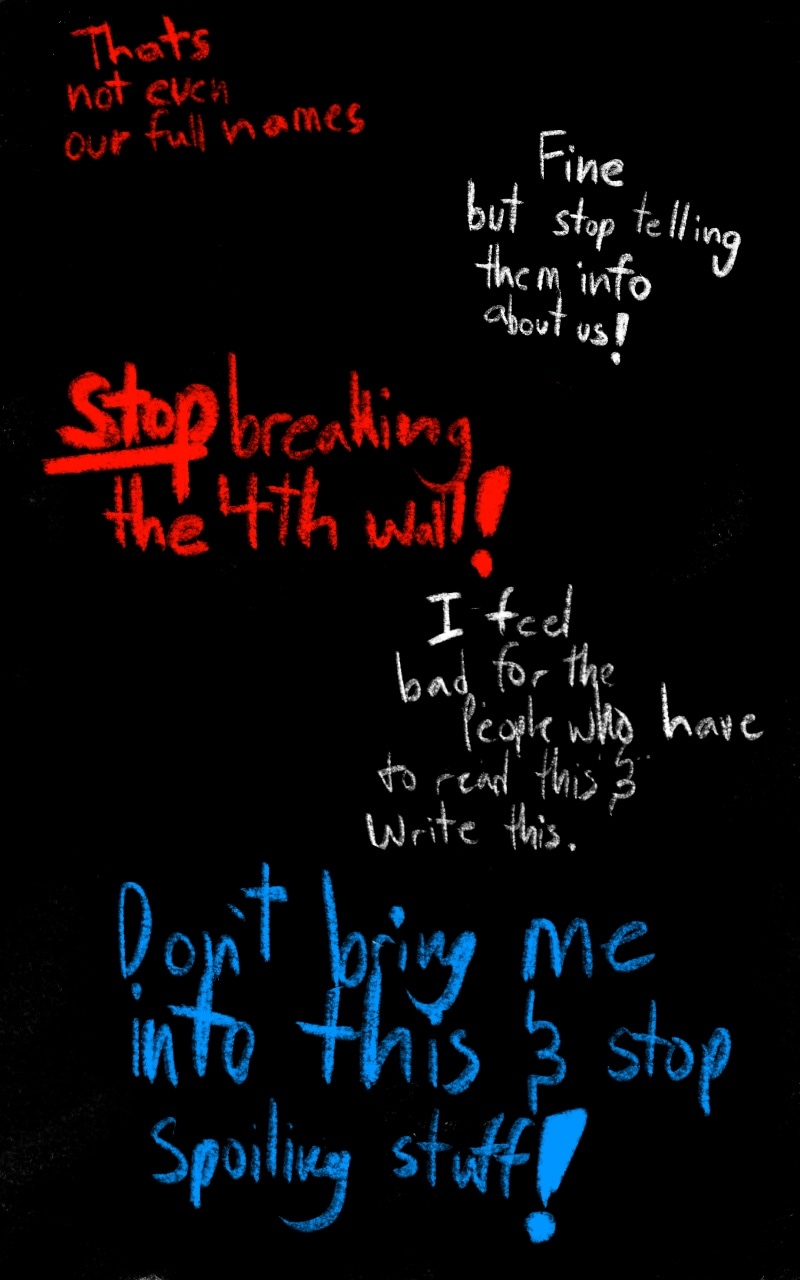 Thats
not even
our full names
Fine
but stop telling
them info
about us!
Stop breaking
the 4th wall!
I feel
bad for the
People who have
to read this &
Write this.
Don't bring me
into this & stop
Spoiling stuff!